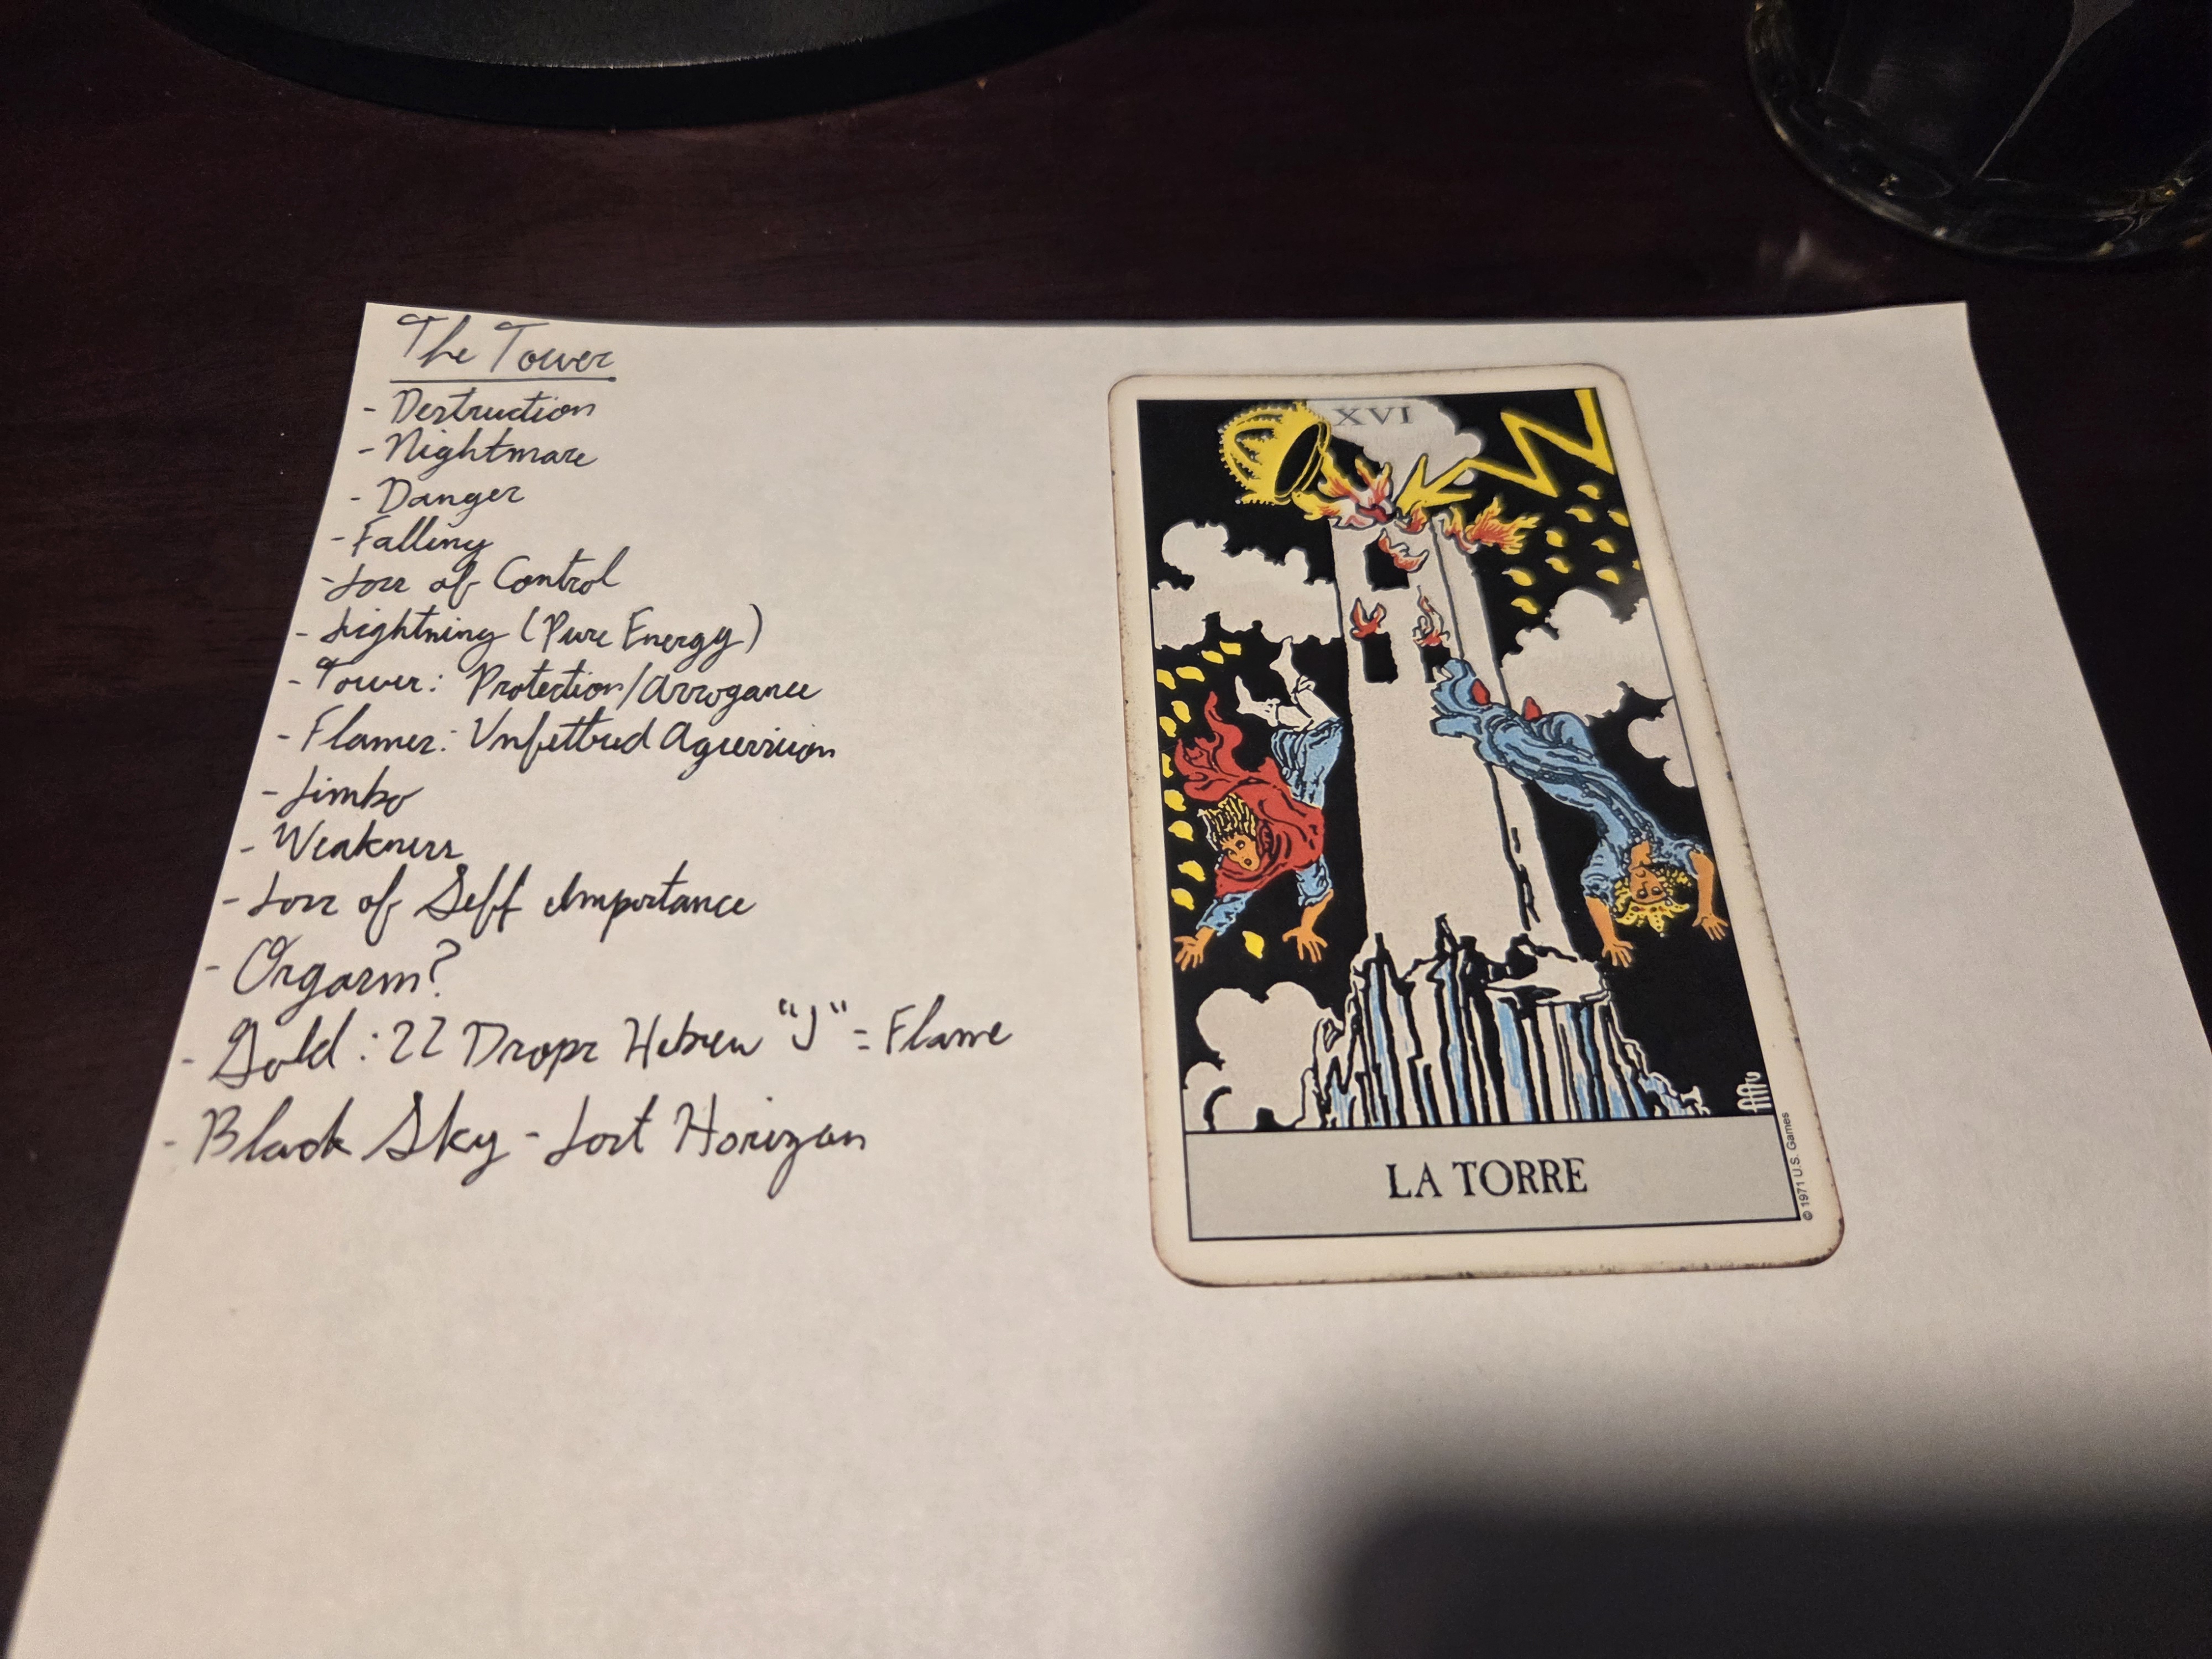 The Tower
- Destruction
- Nightmare
- Danger
- Falling
- Loss of Control
- Lightning (Pure Energy)
- Tower: Protection/Arrogance
- Flames: Unfettered Aggression
- Limbo
- Weakness
- Loss of Self Importance
- Orgasm?
- Gold: 22 Drops Hebrew "J" = Flame
- Black Sky - Lost Horizon
XVI
LA TORRE
© 1971 U.S. Games